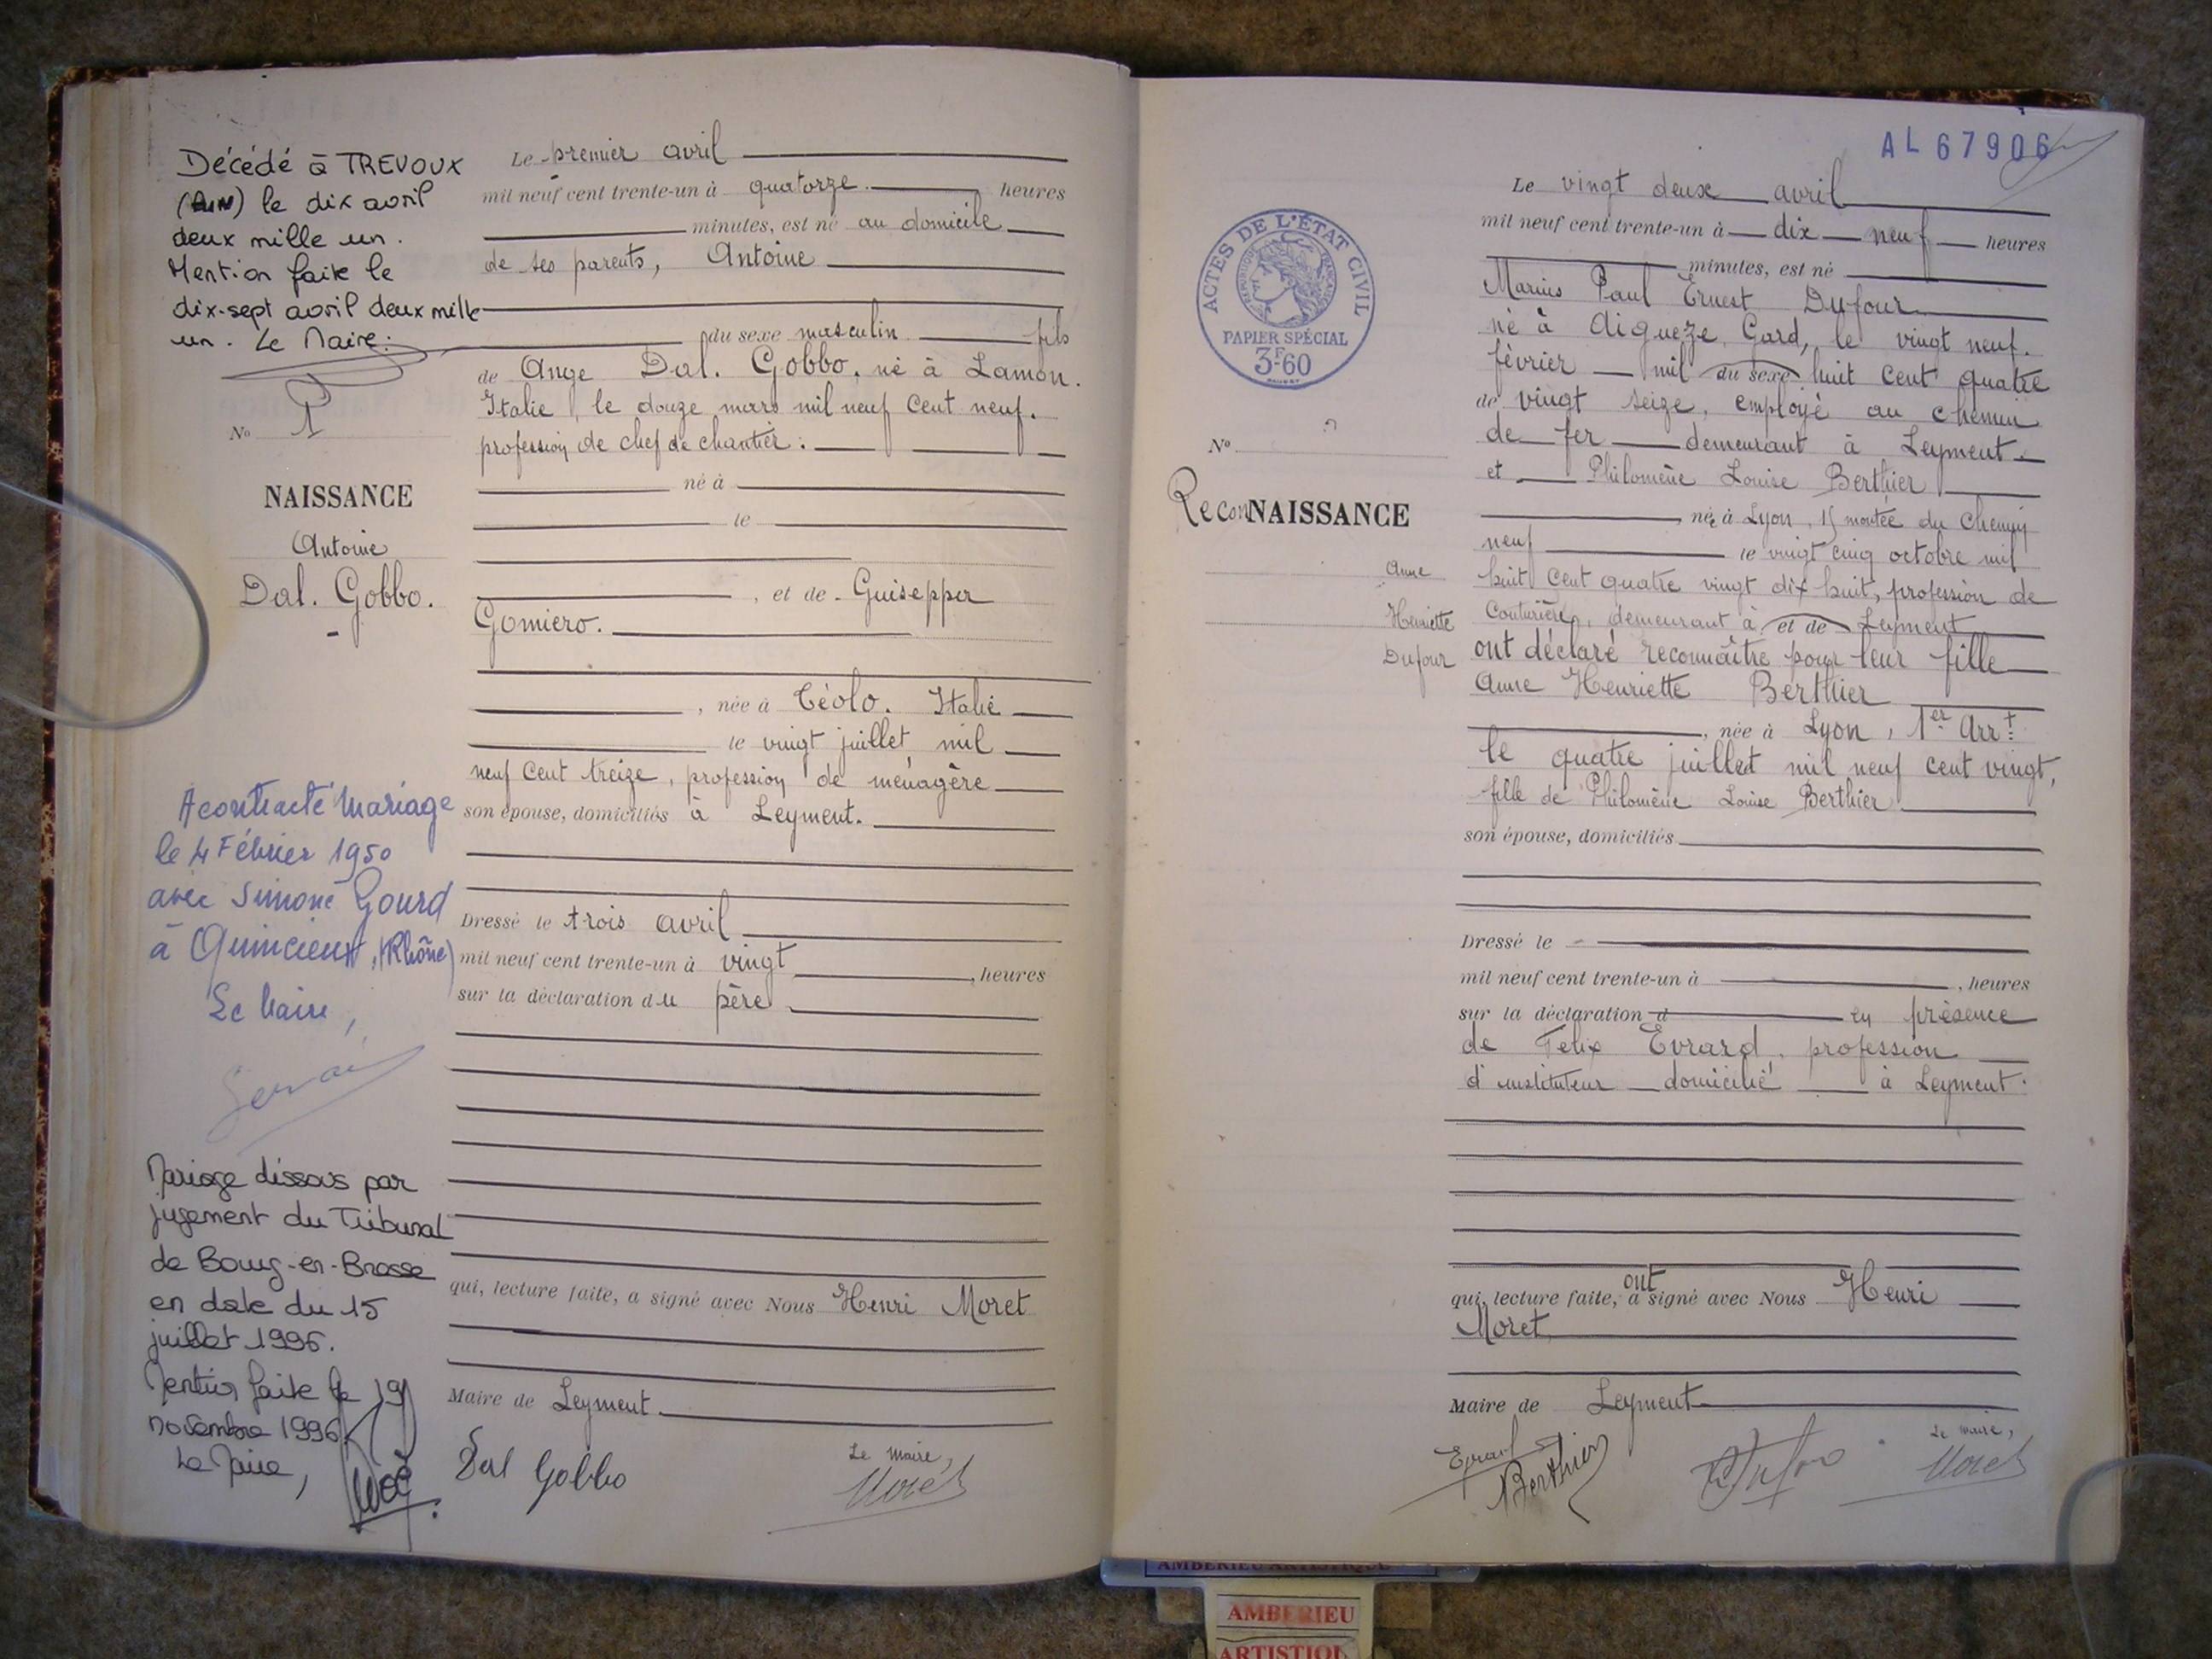 Décédé à TREVOUX
(AIN) le dix avril
deux mille un.
Mention faite le
dix-sept avril deux mille
un. Le Maire:
No 1
NAISSANCE
Antoine
Dal. Gobbo.
A contracté mariage
le 4 Février 1950
avec Simone Gourd
à Quincieux, (Rhône)
Le Maire,
Mariage dissous par
jugement du Tribunal
de Bourg-en-Bresse
en date du 15
juillet 1996.
Mention faite le 19
novembre 1996
Le Maire,
Le premier avril
mil neuf cent trente-un à quatorze heures
minutes, est né au domicile
de ses parents, Antoine
du sexe masculin fils
de Ange Dal. Gobbo, né à Lamon.
Italie, le douze mars mil neuf cent neuf.
profession de chef de chantier.
né à
le
, et de Guisepper
Gomiero.
, née à Téolo. Italie
le vingt juillet mil
neuf cent treize, profession de ménagère
son épouse, domiciliés à Leyment.
Dressé le trois avril
mil neuf cent trente-un à vingt , heures
sur la déclaration du père
qui, lecture faite, a signé avec Nous Henri Moret
Maire de Leyment
Dal Gobbo
Le Maire,
Moret
AL 67906
ACTES DE L'ÉTAT CIVIL
RÉPUBLIQUE FRANÇAISE
PAPIER SPÉCIAL
3F60
No
ReconNAISSANCE
Anne
Henriette
Dufour
Le vingt deux avril
mil neuf cent trente-un à dix neuf heures
minutes, est né
Marius Paul Ernest Dufour
né à Aiguèze, Gard, le vingt neuf.
février mil du sexe huit cent quatre
de vingt seize, employé au chemin
de fer demeurant à Leyment
et Philomène Louise Berthier
née à Lyon, 15 montée du Chemin
neuf le vingt cinq octobre mil
huit cent quatre vingt dix huit, profession de
Couturière, demeurant à et de Leyment
ont déclaré reconnaître pour leur fille
Anne Henriette Berthier
, née à Lyon, 1er Arrt
le quatre juillet mil neuf cent vingt,
fille de Philomène Louise Berthier
son épouse, domiciliés
Dressé le
mil neuf cent trente-un à , heures
sur la déclaration d en présence
de Felix Evrard, profession
d'instituteur domicilié à Leyment.
qui, lecture faite, a ont signé avec Nous Henri
Moret
Maire de Leyment
Evrard
Berthier
Dufour
Le Maire,
Moret
AMBERIEU ARTISTIQUE
AMBERIEU
ARTISTIQU